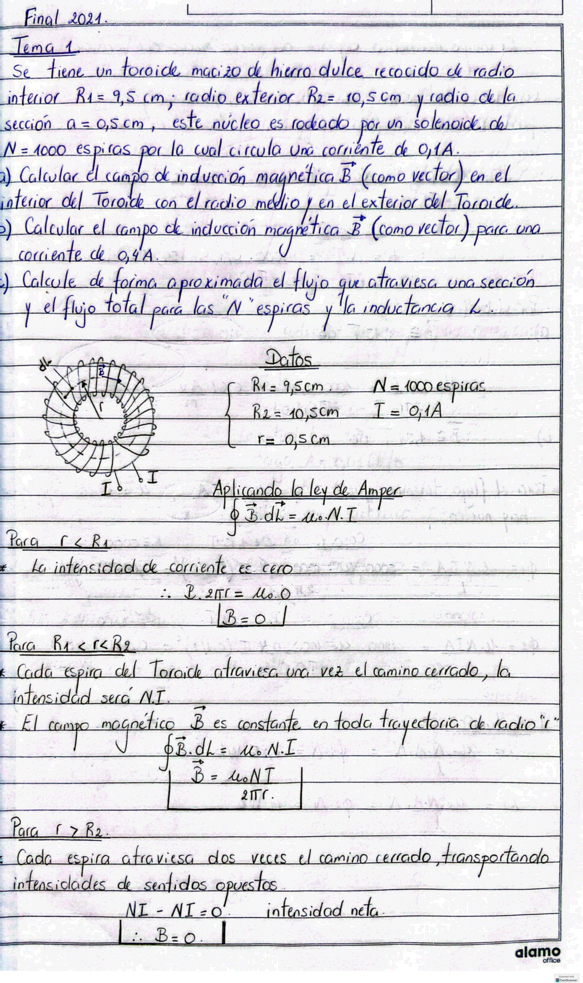 Final 2021.
Tema 1
Se tiene un toroide macizo de hierro dulce recocido de radio
interior R1 = 9,5 cm; radio exterior R2 = 10,5 cm y radio de la
sección a = 0,5 cm, este núcleo es rodeado por un solenoide de
N = 1000 espiras por la cual circula una corriente de 0,1A.
a) Calcular el campo de inducción magnética B⃗ (como vector) en el
interior del Toroide con el radio medio y en el exterior del Toroide.
b) Calcular el campo de inducción magnética B⃗ (como vector) para una
corriente de 0,4A.
c) Calcule de forma aproximada el flujo que atraviesa una sección
y el flujo total para las "N" espiras y la inductancia L.
dL
B⃗
r
I
I
Datos
R1 = 9,5 cm. N = 1000 espiras
R2 = 10,5 cm I = 0,1A
r = 0,5 cm
Aplicando la ley de Amper
∮ B⃗.dL⃗ = μ₀.N.I
Para r < R1
* La intensidad de corriente es cero
∴ B.2πr = μ₀.0
B = 0.
Para R1 < r < R2
* Cada espira del Toroide atraviesa una vez el camino cerrado, la
intensidad será N.I.
* El campo magnético B⃗ es constante en toda trayectoria de radio "r"
∮B⃗.dL = μ₀.N.I
B⃗ = μ₀NI
2πr.
Para r > R2.
* Cada espira atraviesa dos veces el camino cerrado, transportando
intensidades de sentidos opuestos.
NI - NI = 0 intensidad neta.
∴ B = 0.
alamo
office